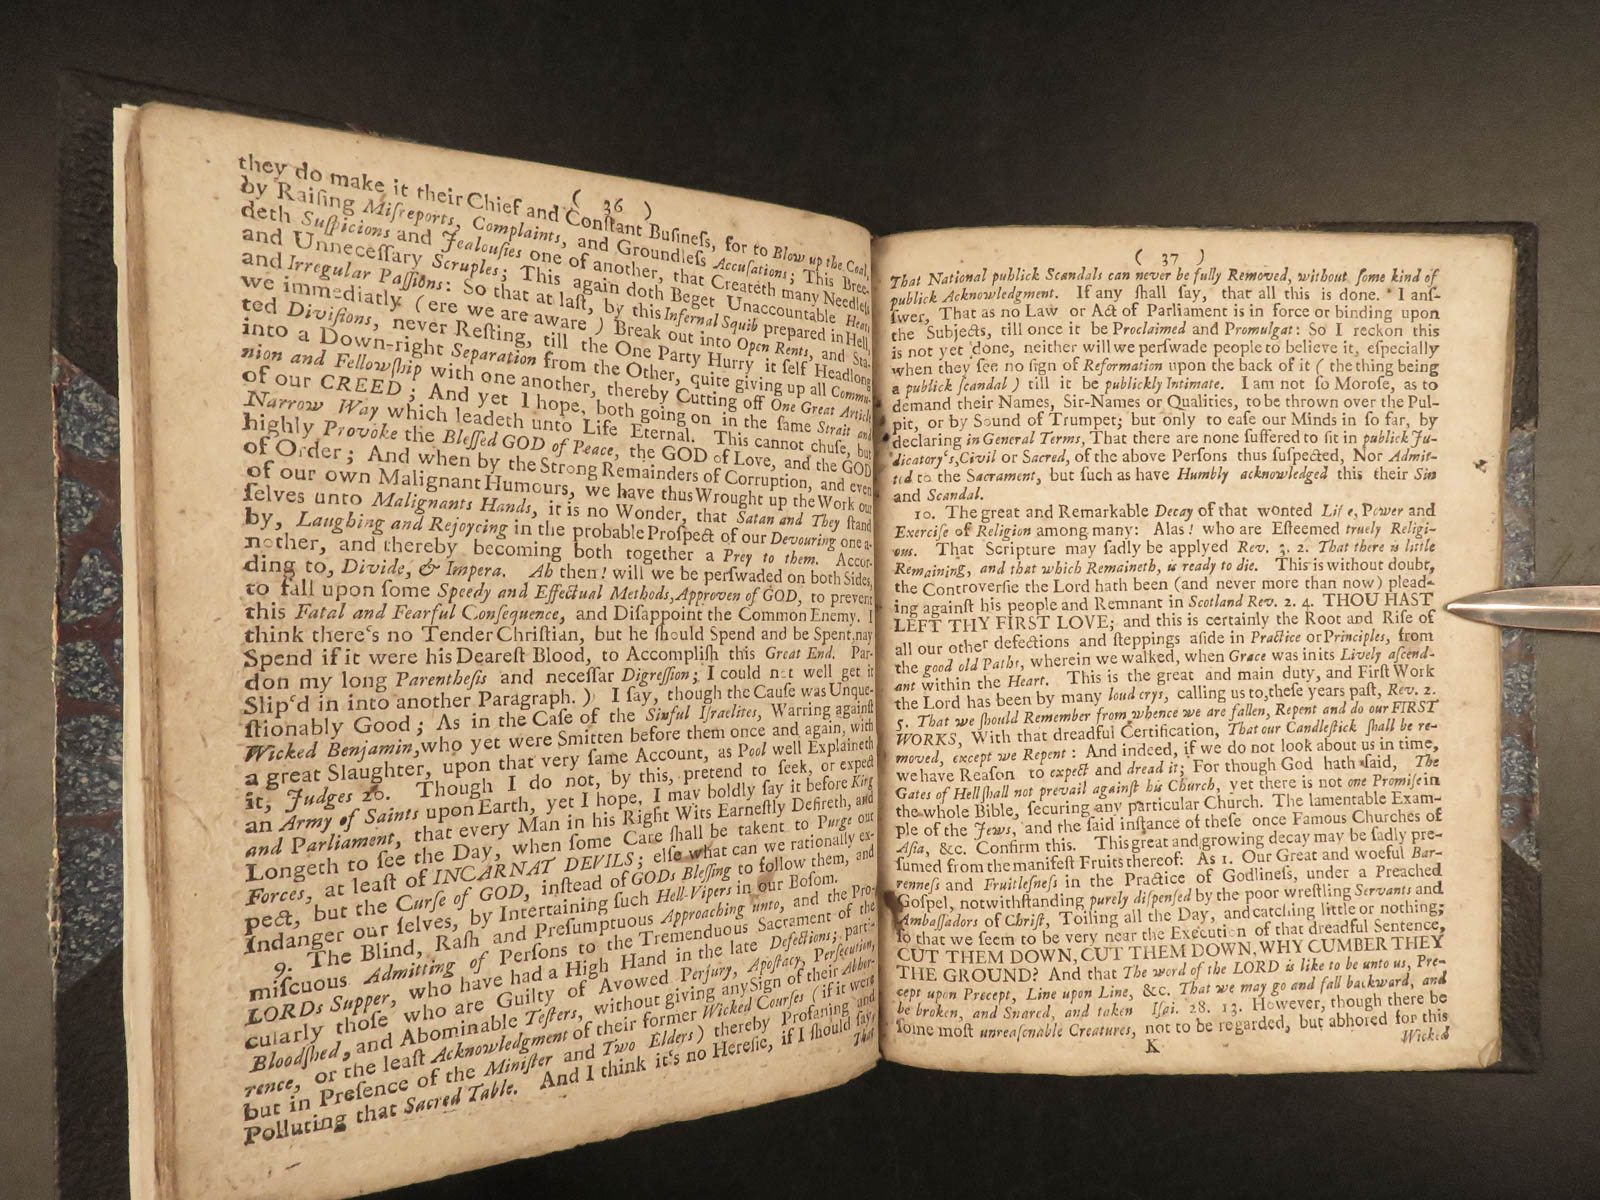 ( 36 )
they do make it their Chief and Conſtant Buſineſs, for to Blow up the Coal,
by Raiſing Miſreports, Complaints, and Groundleſs Accuſations; This Bree-
deth Suſpicions and Jealouſies one of another, that Createth many Needleſs
and Unneceſſary Scruples; This again doth Beget Unaccountable Heats
and Irregular Paſſions: So that at laſt, by this Infernal Squib prepared in Hell,
we immediatly (ere we are aware) Break out into Open Rents, and Sta-
ted Diviſions, never Reſting, till the One Party Hurry it ſelf Headlong
into a Down-right Separation from the Other, quite giving up all Commu-
nion and Fellowſhip with one another, thereby Cutting off One Great Article
of our CREED; And yet I hope, both going on in the ſame Strait and
Narrow Way which leadeth unto Life Eternal. This cannot chuſe, but
highly Provoke the Bleſſed GOD of Peace, the GOD of Love, and the GOD
of Order; And when by the Strong Remainders of Corruption, and even
of our own Malignant Humours, we have thus Wrought up the Work our
ſelves unto Malignants Hands, it is no Wonder, that Satan and They ſtand
by, Laughing and Rejoycing in the probable Proſpect of our Devouring one a-
nother, and thereby becoming both together a Prey to them. Accor-
ding to, Divide, & Impera. Ah then! will we be perſwaded on both Sides,
to fall upon ſome Speedy and Effectual Methods, Approven of GOD, to prevent
this Fatal and Fearful Conſequence, and Diſappoint the Common Enemy. I
think there's no Tender Chriſtian, but he ſhould Spend and be Spent, nay
Spend if it were his Deareſt Blood, to Accompliſh this Great End. Par-
don my long Parentheſis and neceſſar Digreſſion; I could not well get it
Slip'd in into another Paragraph.) I ſay, though the Cauſe was Unque-
ſtionably Good; As in the Caſe of the Sinful Iſraelites, Warring againſt
Wicked Benjamin, who yet were Smitten before them once and again, with
a great Slaughter, upon that very ſame Account, as Pool well Explaineth
it, Judges 20. Though I do not, by this, pretend to ſeek, or expect
an Army of Saints upon Earth, yet I hope, I may boldly ſay it before King
and Parliament, that every Man in his Right Wits Earneſtly Deſireth, and
Longeth to ſee the Day, when ſome Care ſhall be taken to Purge out
Forces, at leaſt of INCARNAT DEVILS; elſe what can we rationally ex-
pect, but the Curſe of GOD, inſtead of GODs Bleſſing to follow them, and
Indanger our ſelves, by Intertaining ſuch Hell-Vipers in our Boſom.
9. The Blind, Raſh and Preſumptuous Approaching unto, and the Pro-
miſcuous Admitting of Perſons to the Tremenduous Sacrament of the
LORDs Supper, who have had a High Hand in the late Defections; parti-
cularly thoſe who are Guilty of Avowed Perjury, Apoſtacy, Perſecution,
Bloodſhed, and Abominable Teſters, without giving any Sign of their Abhor-
rence, or the leaſt Acknowledgment of their former Wicked Courſes (if it were
but in Preſence of the Miniſter and Two Elders) thereby Profaning and
Polluting that Sacred Table. And I think it's no Hereſie, if I ſhould ſay,
That
( 37 )
That National publick Scandals can never be fully Removed, without ſome kind of
publick Acknowledgment. If any ſhall ſay, that all this is done. I anſ-
ſwer, That as no Law or Act of Parliament is in force or binding upon
the Subjects, till once it be Proclaimed and Promulgat: So I reckon this
is not yet done, neither will we perſwade people to believe it, eſpecially
when they ſee no ſign of Reformation upon the back of it (the thing being
a publick ſcandal) till it be publickly Intimate. I am not ſo Moroſe, as to
demand their Names, Sir-Names or Qualities, to be thrown over the Pul-
pit, or by Sound of Trumpet; but only to eaſe our Minds in ſo far, by
declaring in General Terms, That there are none ſuffered to ſit in publick Ju-
dicatory's, Civil or Sacred, of the above Perſons thus ſuſpected, Nor Admit-
ted to the Sacrament, but ſuch as have Humbly acknowledged this their Sin
and Scandal.
10. The great and Remarkable Decay of that wonted Life, Power and
Exerciſe of Religion among many: Alas! who are Eſteemed truely Religi-
ous. That Scripture may ſadly be applyed Rev. 3. 2. That there is little
Remaining, and that which Remaineth, is ready to die. This is without doubt,
the Controverſie the Lord hath been (and never more than now) plead-
ing againſt his people and Remnant in Scotland Rev. 2. 4. THOU HAST
LEFT THY FIRST LOVE; and this is certainly the Root and Riſe of
all our other defections and ſteppings aſide in Practice or Principles, from
the good old Paths, wherein we walked, when Grace was in its Lively aſcend-
ant within the Heart. This is the great and main duty, and Firſt Work
the Lord has been by many loud crys, calling us to, theſe years paſt, Rev. 2.
5. That we ſhould Remember from whence we are fallen, Repent and do our FIRST
WORKS, With that dreadful Certification, That our Candleſtick ſhall be re-
moved, except we Repent: And indeed, if we do not look about us in time,
we have Reaſon to expect and dread it; For though God hath ſaid, The
Gates of Hell ſhall not prevail againſt his Church, yet there is not one Promiſe in
the whole Bible, ſecuring any particular Church. The lamentable Exam-
ple of the Jews, and the ſaid inſtance of theſe once Famous Churches of
Aſia, &c. Confirm this. This great and growing decay may be ſadly pre-
ſumed from the manifeſt Fruits thereof: As 1. Our Great and woeful Bar-
renneſs and Fruitleſneſs in the Practice of Godlineſs, under a Preached
Goſpel, notwithſtanding purely diſpenſed by the poor wreſtling Servants and
Ambaſſadors of Chriſt, Toiling all the Day, and catching little or nothing;
ſo that we ſeem to be very near the Execution of that dreadful Sentence,
CUT THEM DOWN, CUT THEM DOWN, WHY CUMBER THEY
THE GROUND? And that The word of the LORD is like to be unto us, Pre-
cept upon Precept, Line upon Line, &c. That we may go and fall backward, and
be broken, and Snared, and taken Iſai. 28. 13. However, though there be
ſome moſt unreaſenable Creatures, not to be regarded, but abhored for this
K
Wicked